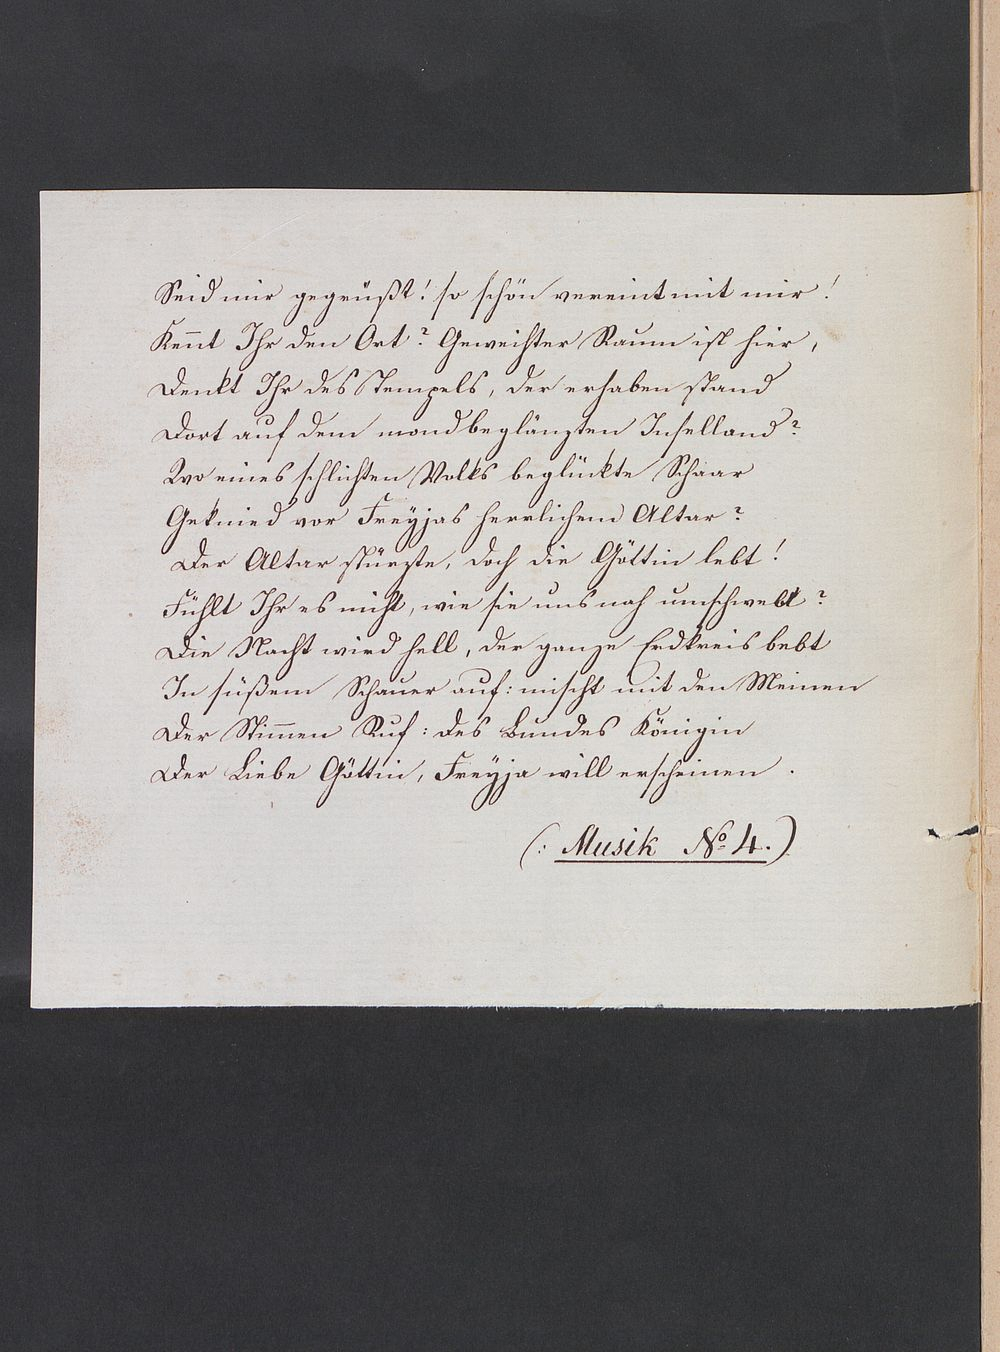 Seid mir gegrüßt! so schön vereint mit mir!
Kennt Ihr den Ort? Geweihter Raum ist hier,
Denkt Ihr des Tempels, der erhaben stand
Dort auf dem mondbeglänzten Inselland?
Wo eines schlichten Volks beglückte Schaar
Geknied vor Freyjas herrlichem Altar?
Der Altar stürzte, doch die Göttin lebt!
Fühlt Ihr es nicht, wie sie uns nah umschwebt?
Die Nacht wird hell, der ganze Erdkreis bebt
In süßem Schauer auf: mischt mit den Meinen
Der Stimmen Ruf: des Bundes Königin
Der Liebe Göttin, Freyja will erscheinen.
(: Musik No 4.)